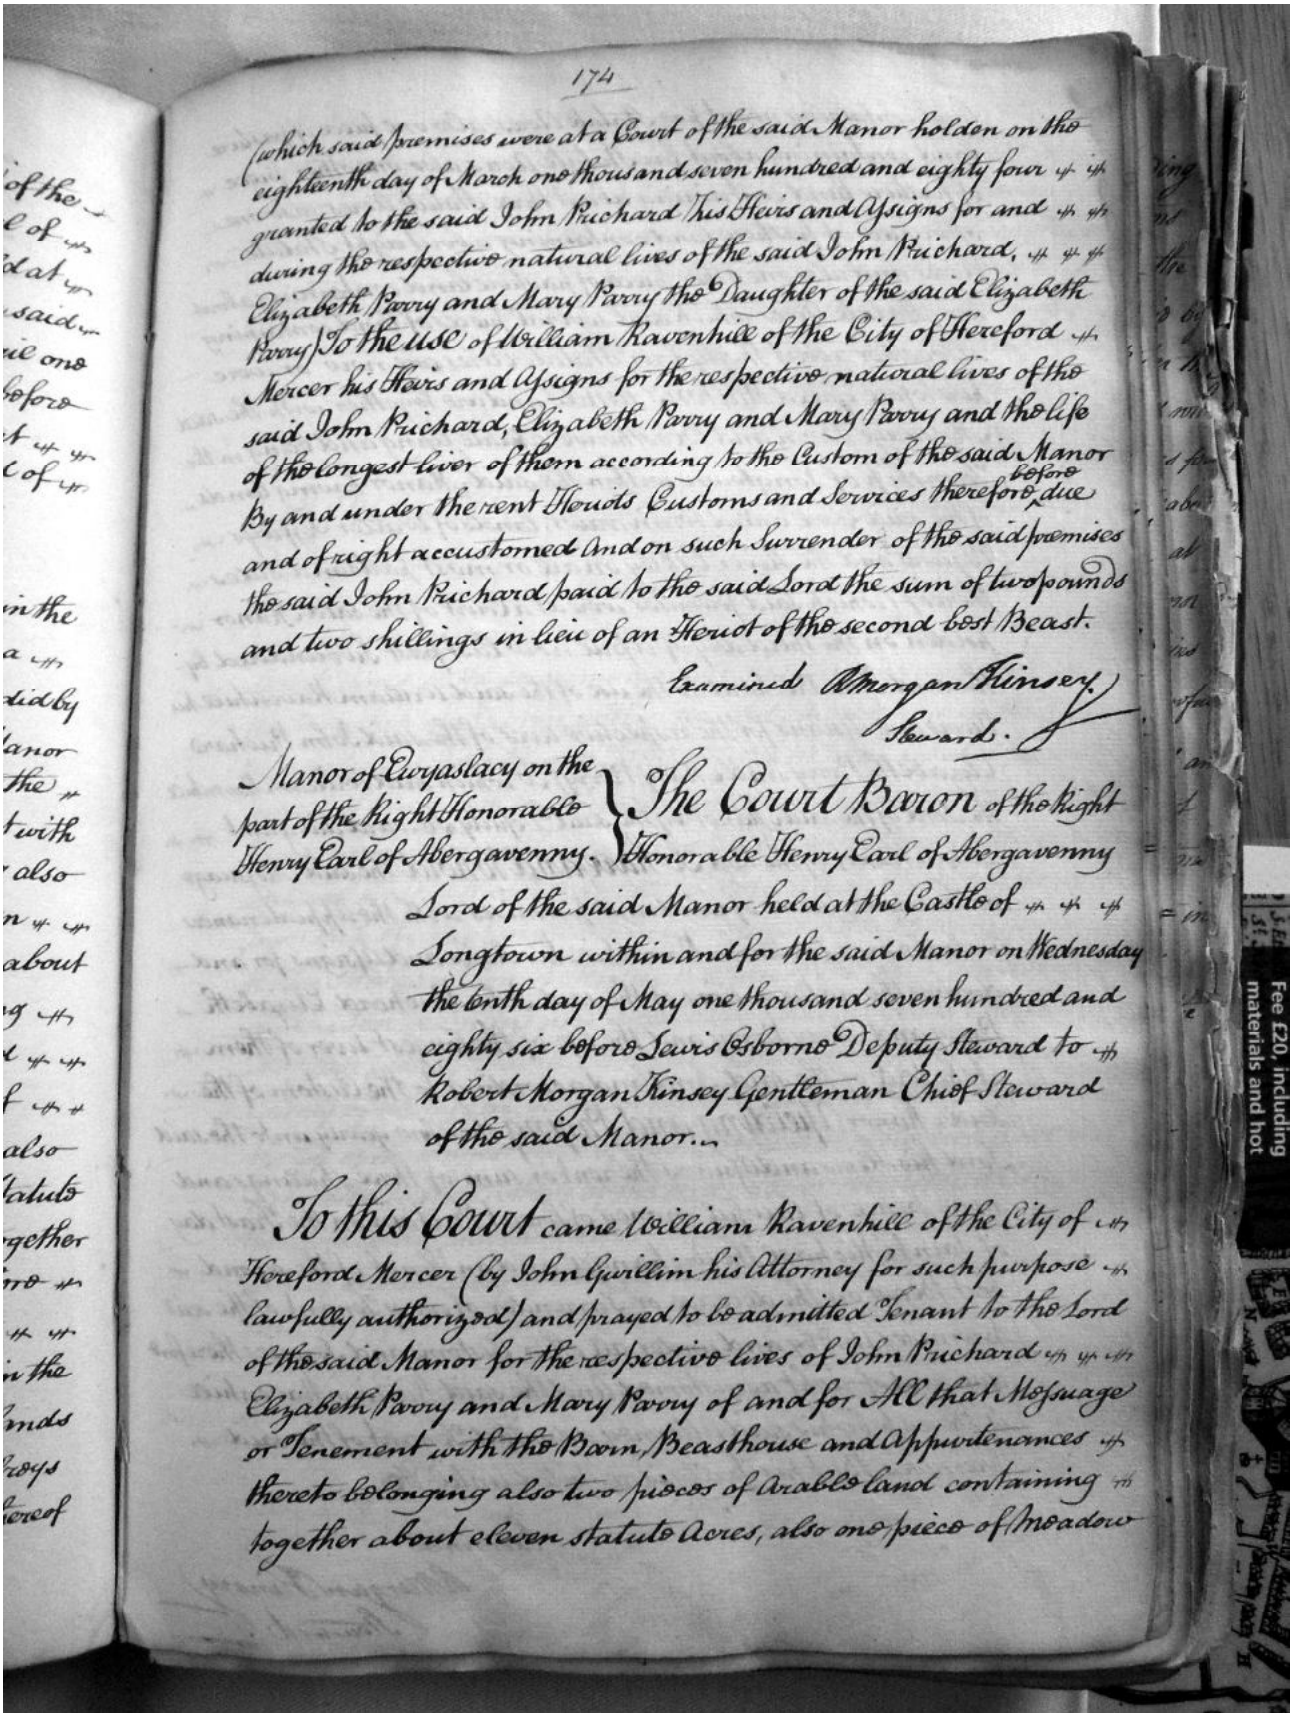 174
(which said premises were at a Court of the said Manor holden on the
eighteenth day of March one thousand seven hundred and eighty four
granted to the said John Prichard his Heirs and Assigns for and
during the respective natural lives of the said John Prichard,
Elizabeth Parry and Mary Parry the Daughter of the said Elizabeth
Parry) To the use of William Ravenhill of the City of Hereford
Mercer his Heirs and Assigns for the respective natural lives of the
said John Prichard, Elizabeth Parry and Mary Parry and the life
of the longest liver of them according to the Custom of the said Manor
By and under the rent Heriots Customs and Services therefore before due
and of right accustomed And on such Surrender of the said premises
the said John Prichard paid to the said Lord the sum of two pounds
and two shillings in lieu of an Heriot of the second best Beast.
Examined RMorgan Kinsey
Steward.
Manor of Ewyaslacy on the
part of the Right Honorable
Henry Earl of Abergavenny.
The Court Baron of the Right
Honorable Henry Earl of Abergavenny
Lord of the said Manor held at the Castle of
Longtown within and for the said Manor on Wednesday
the tenth day of May one thousand seven hundred and
eighty six before Lewis Osborne Deputy Steward to
Robert Morgan Kinsey Gentleman Chief Steward
of the said Manor.
To this Court came William Ravenhill of the City of
Hereford Mercer (by John Gwillim his Attorney for such purpose
lawfully authorized) and prayed to be admitted Tenant to the Lord
of the said Manor for the respective lives of John Prichard
Elizabeth Parry and Mary Parry of and for All that Messuage
or Tenement with the Barn, Beasthouse and Appurtenances
thereto belonging also two pieces of Arable land containing
together about eleven statute Acres, also one piece of Meadow
of the
of
at
said
one
before
of
in the
a
did by
the
with
also
about
also
in the
Fee £20, including
materials and hot